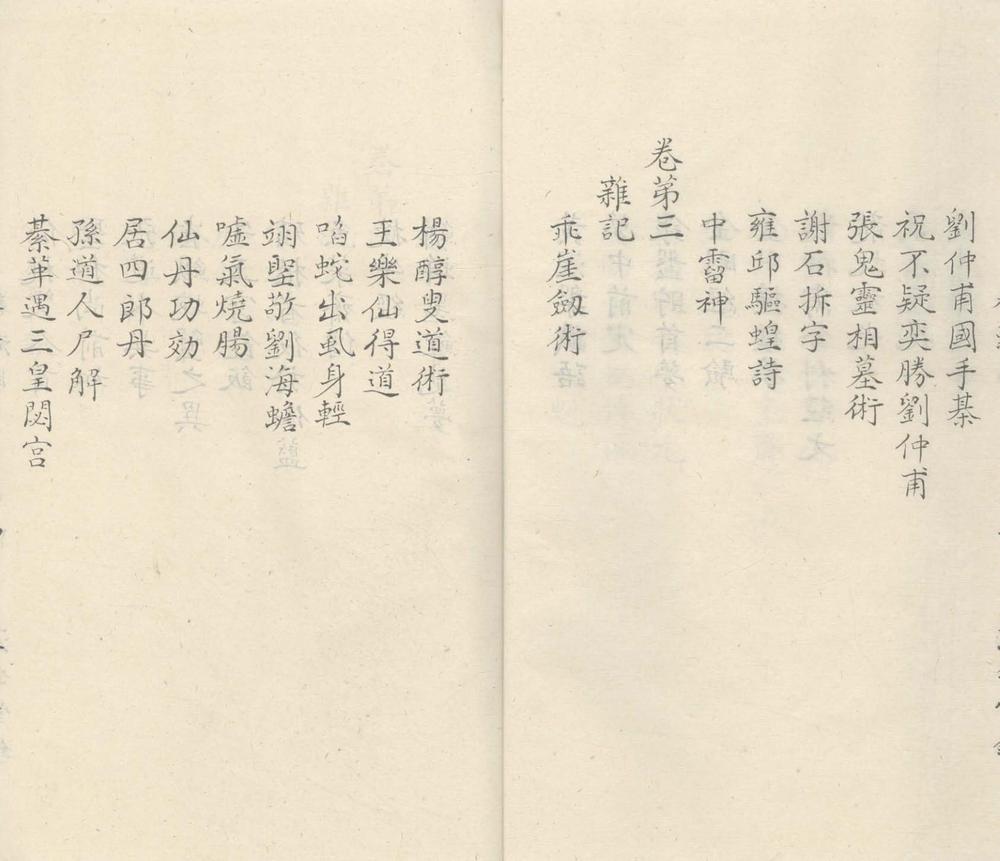 劉仲甫國手棊
祝不疑奕勝劉仲甫
張鬼靈相墓術
謝石拆字
雍邱驅蝗詩
中霤神
卷苐三
雜記
乖崖劔術
楊醇叟道術
王樂仙得道
啗蛇出虱身輕
翊聖敬劉海蟾
噓氣燒腸
仙丹功効
居四郎丹
孫道人尸解
綦革遇三皇閟宫